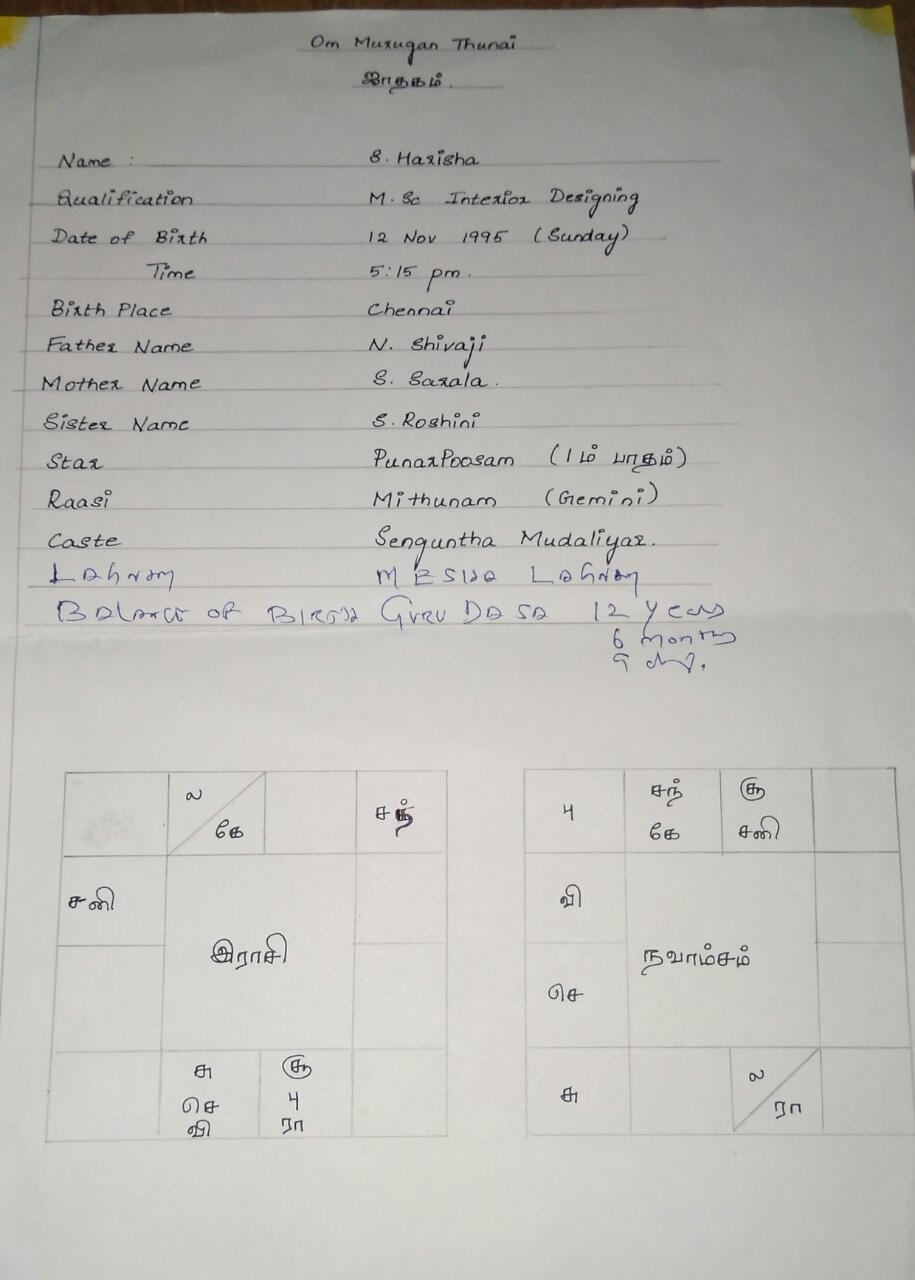 Om Murugan Thunai
ஜாதகம்.
Name : S. Harisha
Qualification M.Sc Interior Designing
Date of Birth 12 Nov 1995 (Sunday)
Time 5:15 pm.
Birth Place Chennai
Father Name N. Shivaji
Mother Name S. Sarala.
Sister Name S. Roshini
Star PunarPoosam (1ம் பாதம்)
Raasi Mithunam (Gemini)
Caste Senguntha Mudaliyar.
Lagnam MESHA Lagnam
Balance of BIRTH GURU DASA 12 years
6 months
9 days.
ல சந் பு சந் சூ
கே கே சனி
சனி வி
இராசி நவாம்சம்
செ
சு சூ சு ல
செ பு ரா
வி ரா